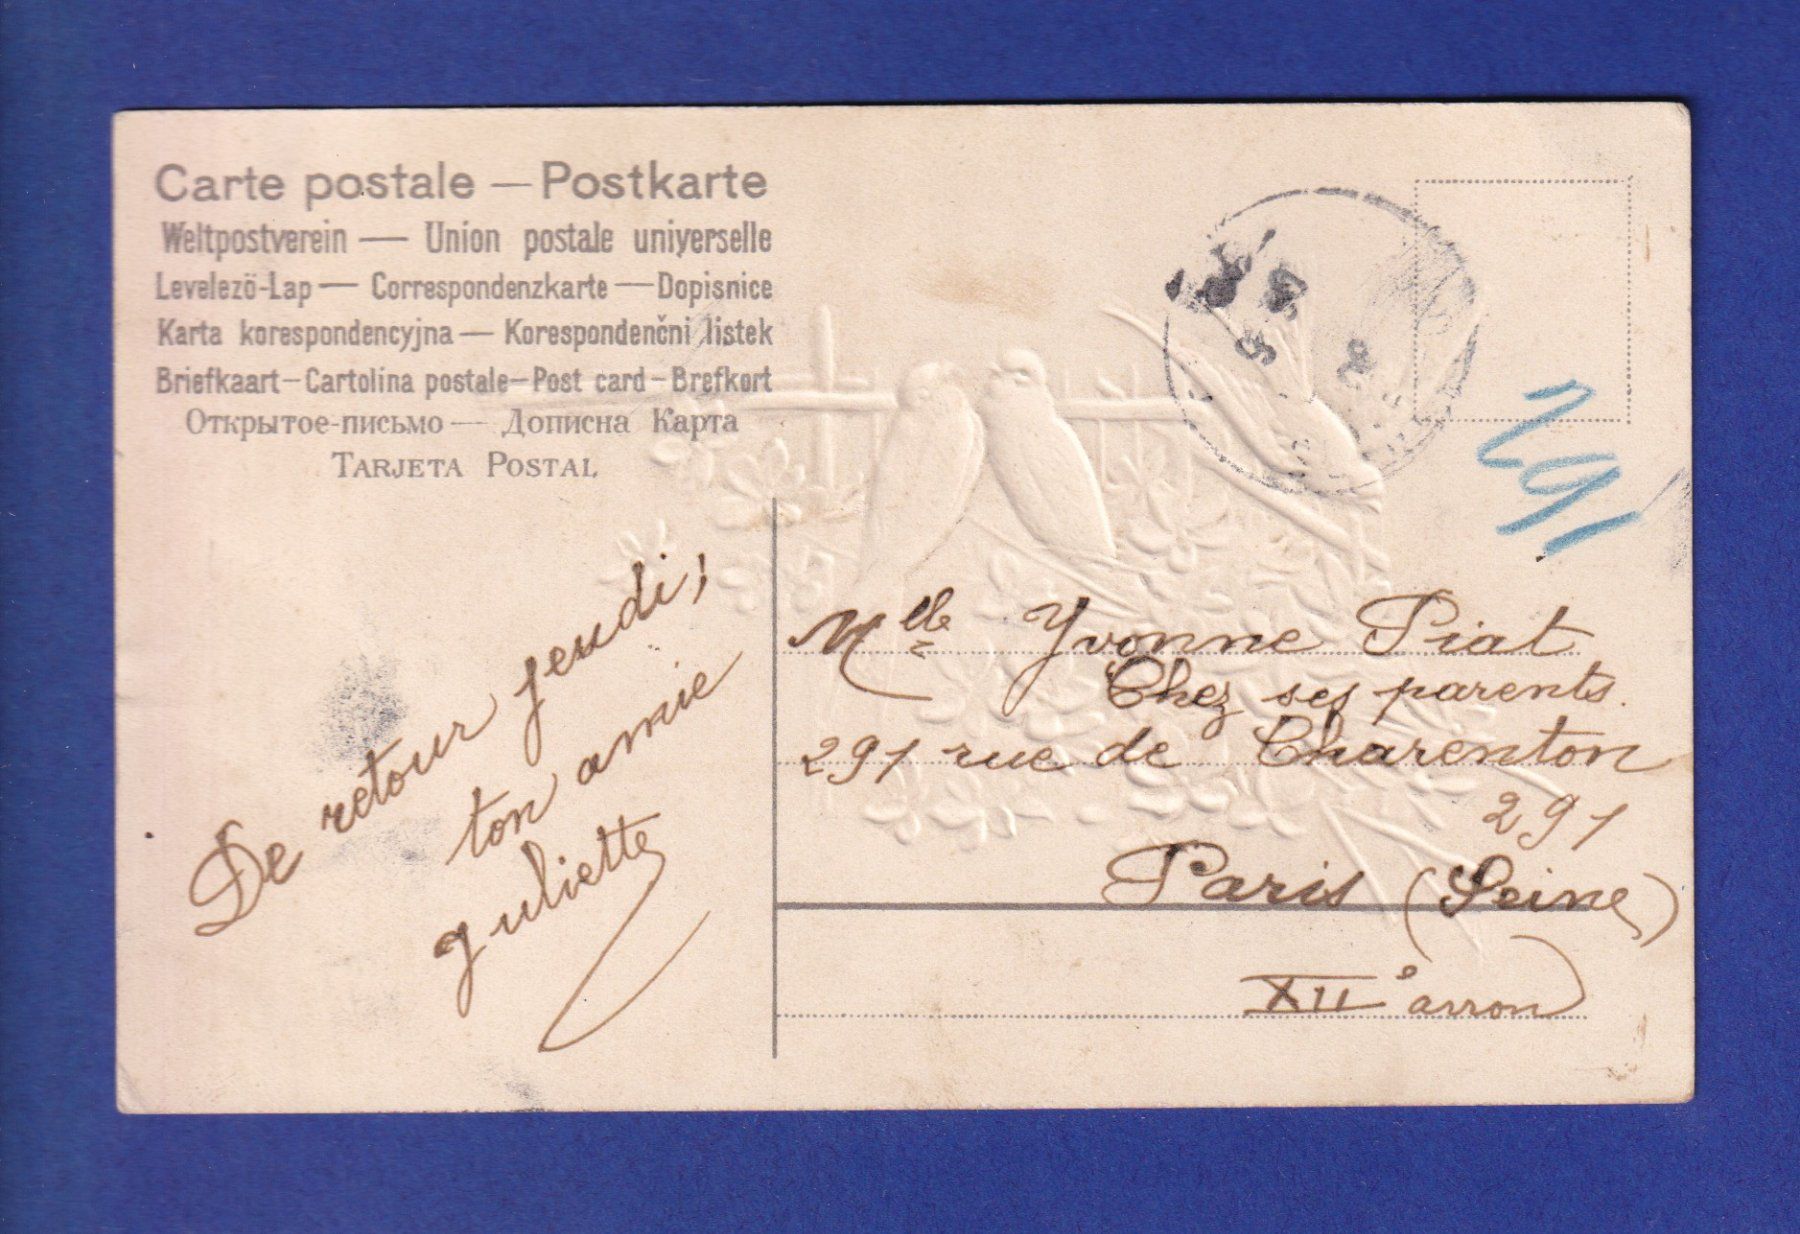 Carte postale — Postkarte
Weltpostverein — Union postale universelle
Levelező-Lap — Correspondenzkarte — Dopisnice
Karta korespondencyjna — Korespondenčni listek
Briefkaart — Cartolina postale — Post card — Brefkort
Открытое-письмо — Дописна Карта
TARJETA POSTAL
291
De retour jeudi,
ton amie
Juliette
Mlle Yvonne Piat
Chez ses parents.
291 rue de Charenton
291
Paris (Seine)
XIIe arron